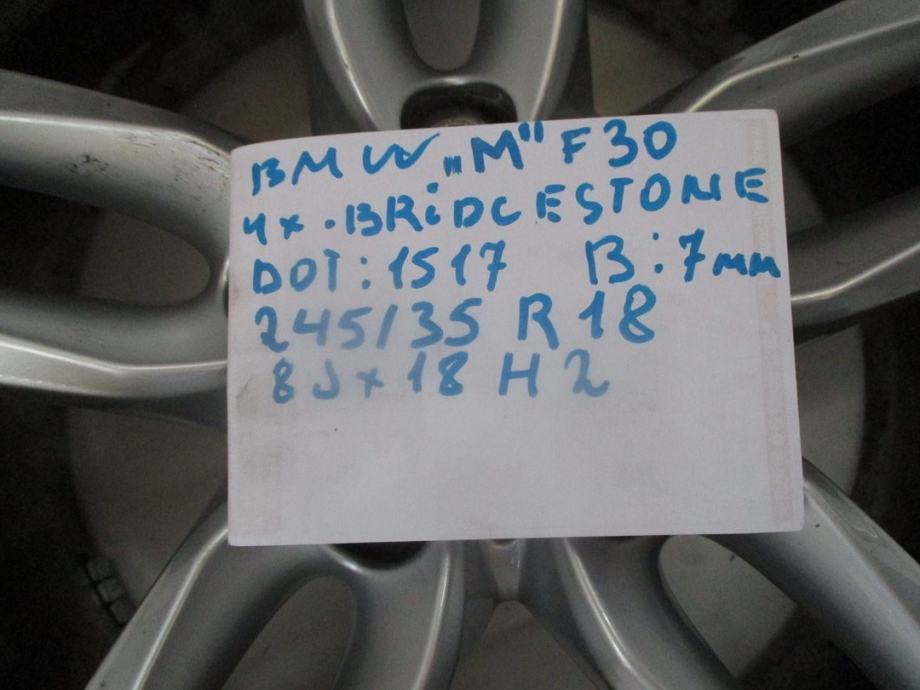 BMW „M" F30
4x. BRiDGESTONE
DOT: 1517 B: 7mm
245/35 R 18
8Jx18 H2